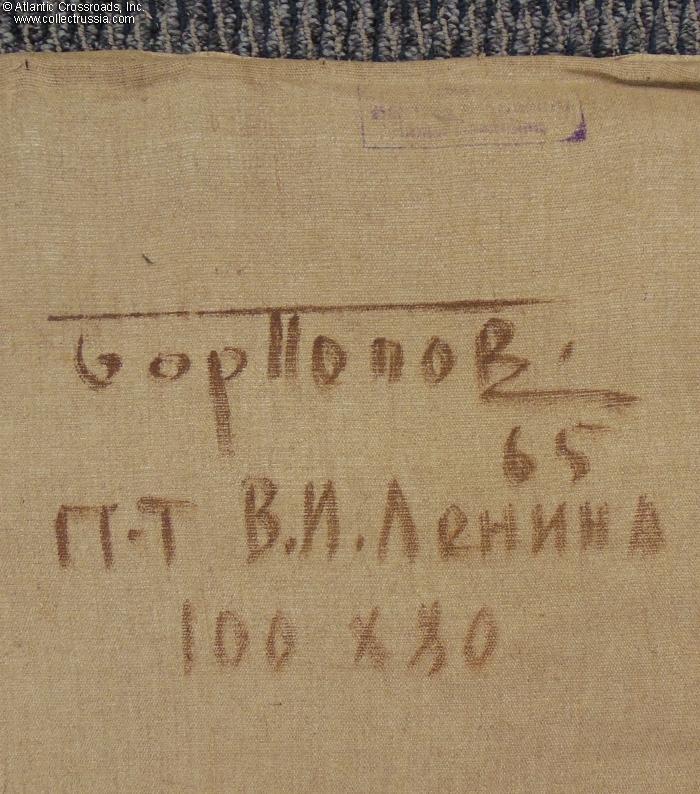 © Atlantic Crossroads, Inc.
www.collectrussia.com
борПопов.
65
П-Т В.И.Ленина
100 х 80